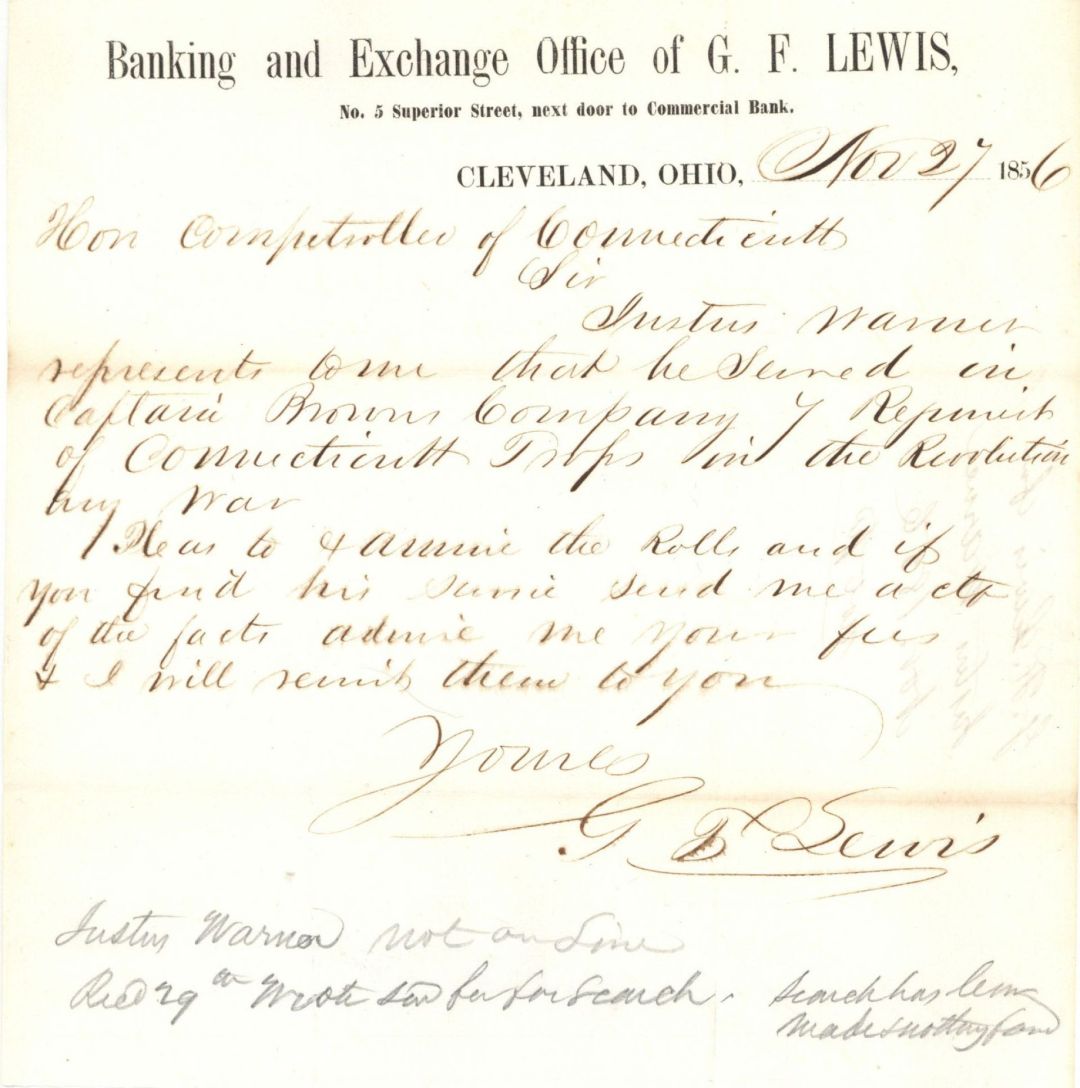 Banking and Exchange Office of G. F. LEWIS,
No. 5 Superior Street, next door to Commercial Bank.
CLEVELAND, OHIO, Nov 27 1856
Hon Comptroller of Connecticutt
Sir
Justus Warner
represents to me that he Served in
Captain Browns Company 7 Regiment
of Connecticutt Trops in the Revolution
ary War
Pleas to examine the Rolls and if
you find his servic send me a ctf
of the facts advise me your fees
& I will remit them to you
Youres
G F Lewis
Justus Warner not on
Recd 29th Wrote for search. Search has been
made & nothing found